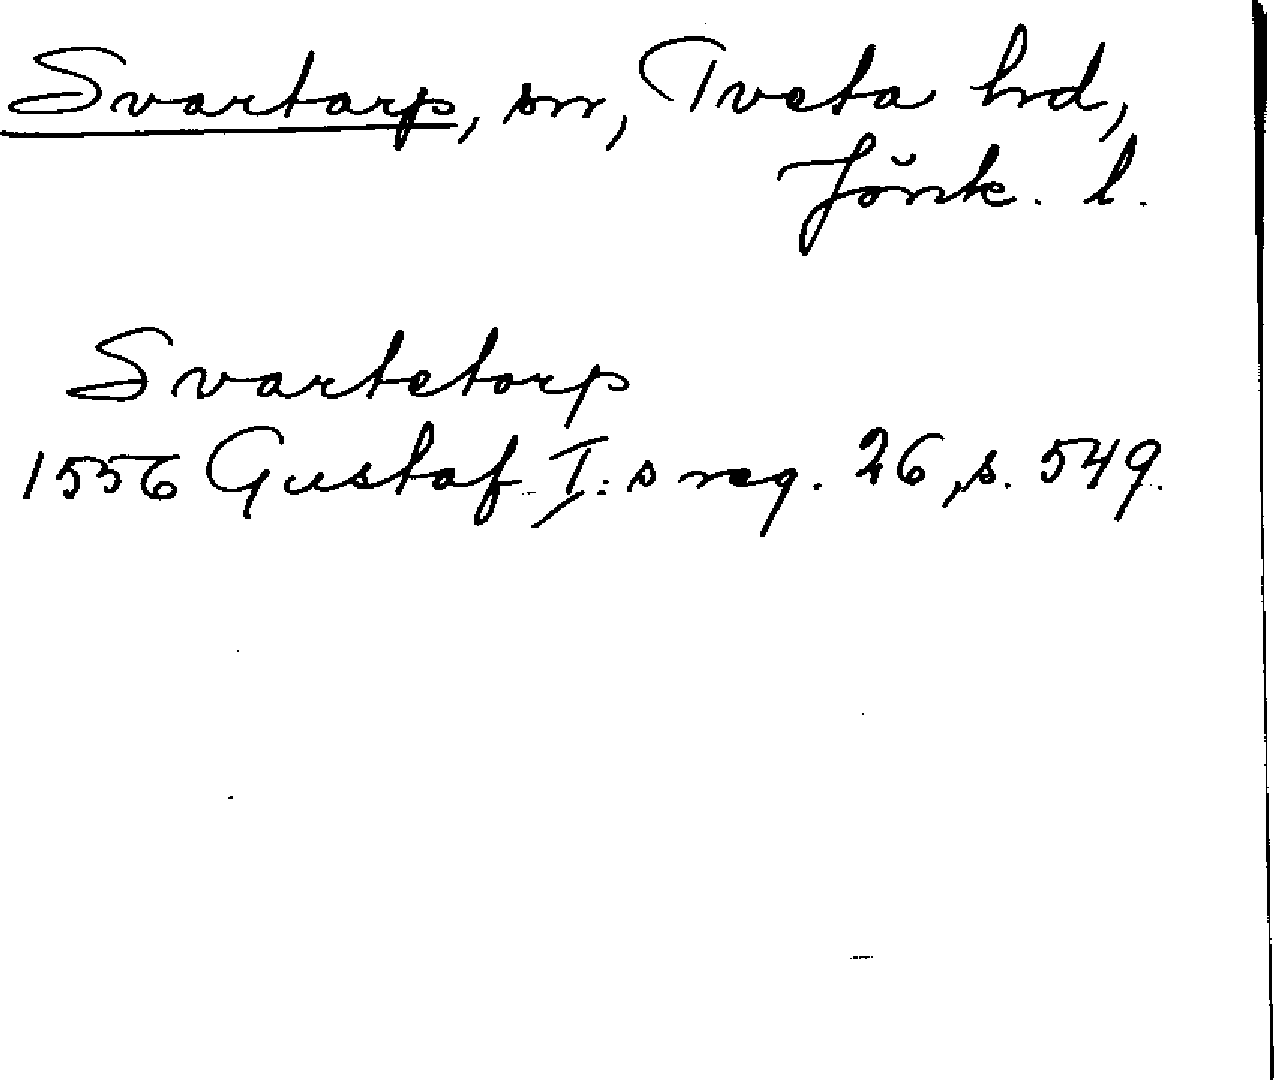 Svartarp, sn, Tveta hd,
Jönk. l.
Svartetorp
1556 Gustaf I:s reg. 26, s. 549.